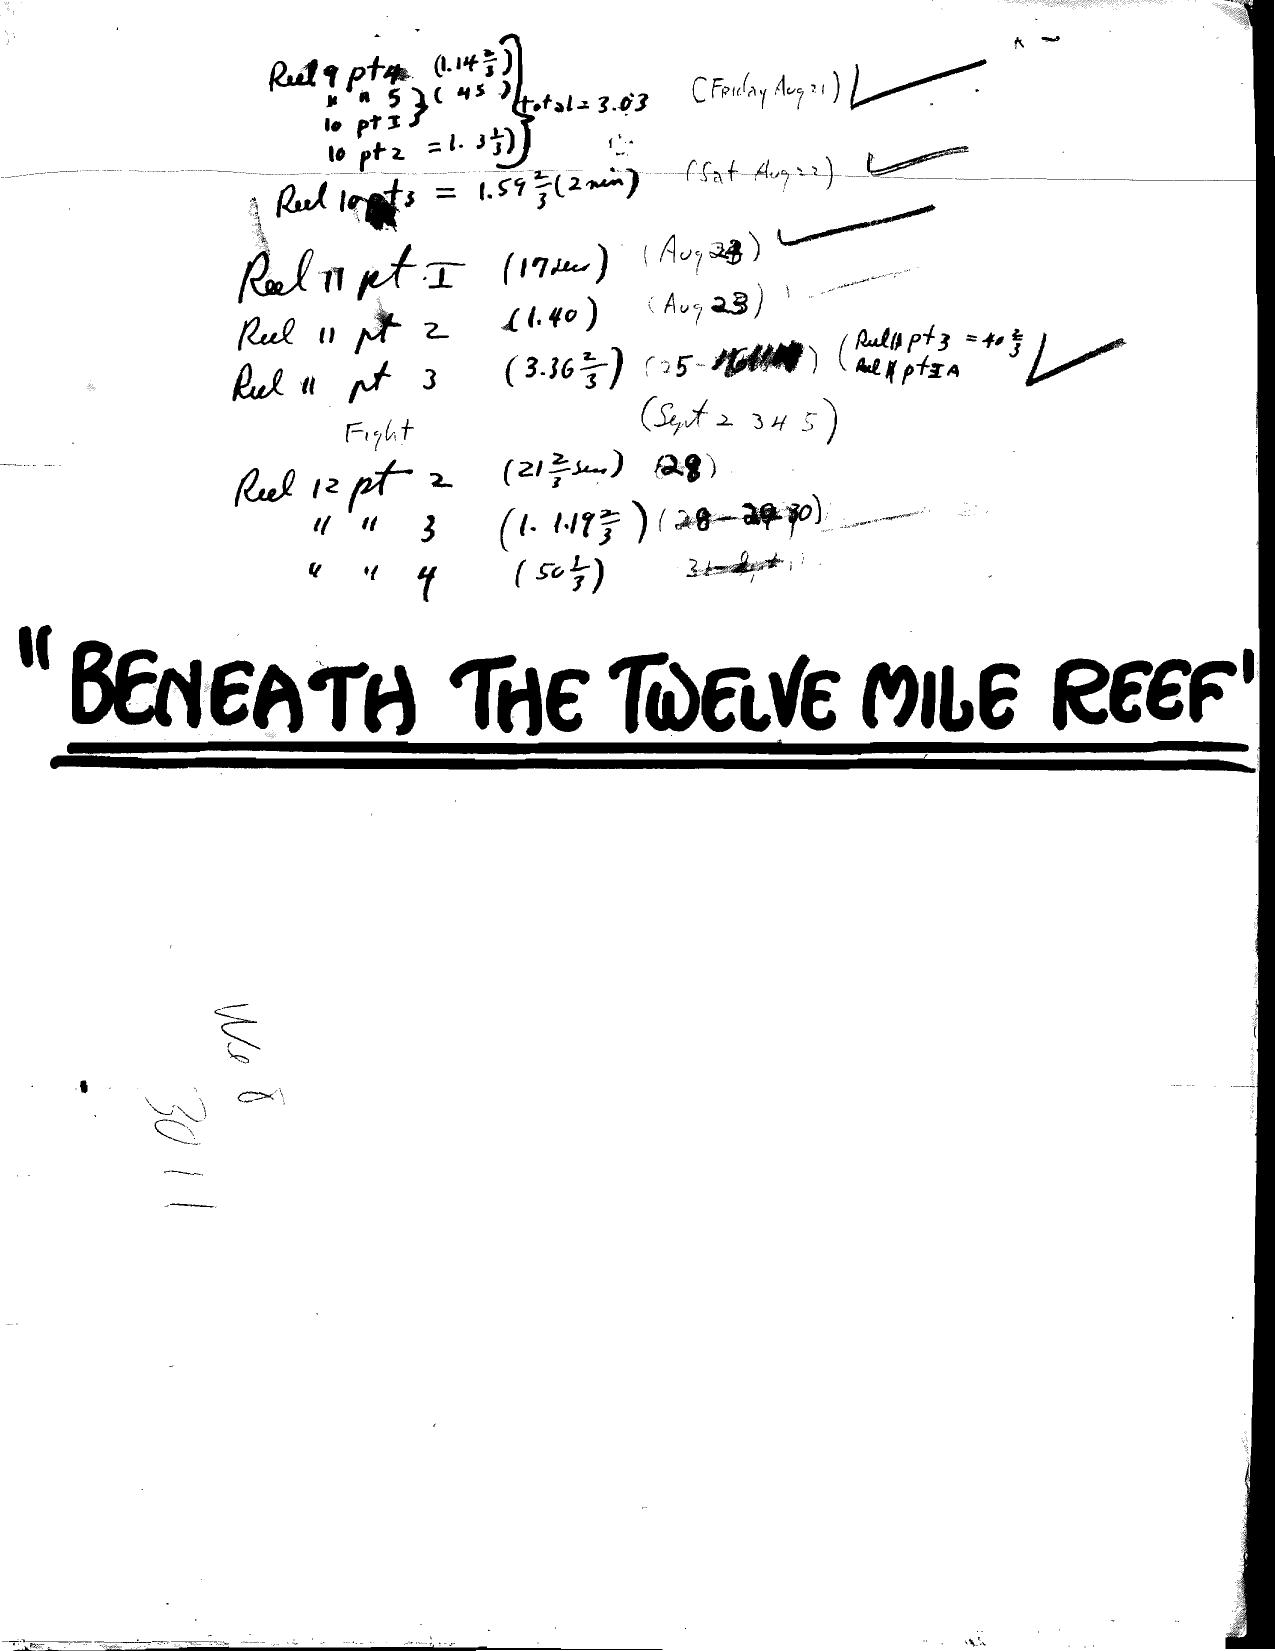 Reel 9 pt 4 (1.14 2/3)
" " 5 ( 45 ) total = 3.03 (Friday Aug 21)
10 pt I
10 pt 2 = 1. 3 1/3)
Reel 10 pt 3 = 1.59 2/3 (2 min) (Sat Aug 22)
Reel 11 pt I (17 sec) (Aug 23)
Reel 11 pt 2 (1.40) (Aug 23)
Reel 11 pt 3 (3.36 2/3) (25- ) (Reel 11 pt 3 = 40 2/3
Reel 11 pt I A
Fight (Sept 2 3 4 5)
Reel 12 pt 2 (21 2/3 sec) (28)
" " 3 (1. 1.19 2/3) (28 - 29 30)
" " 4 (50 1/3) 31
"BENEATH THE TWELVE MILE REEF'
8
3011